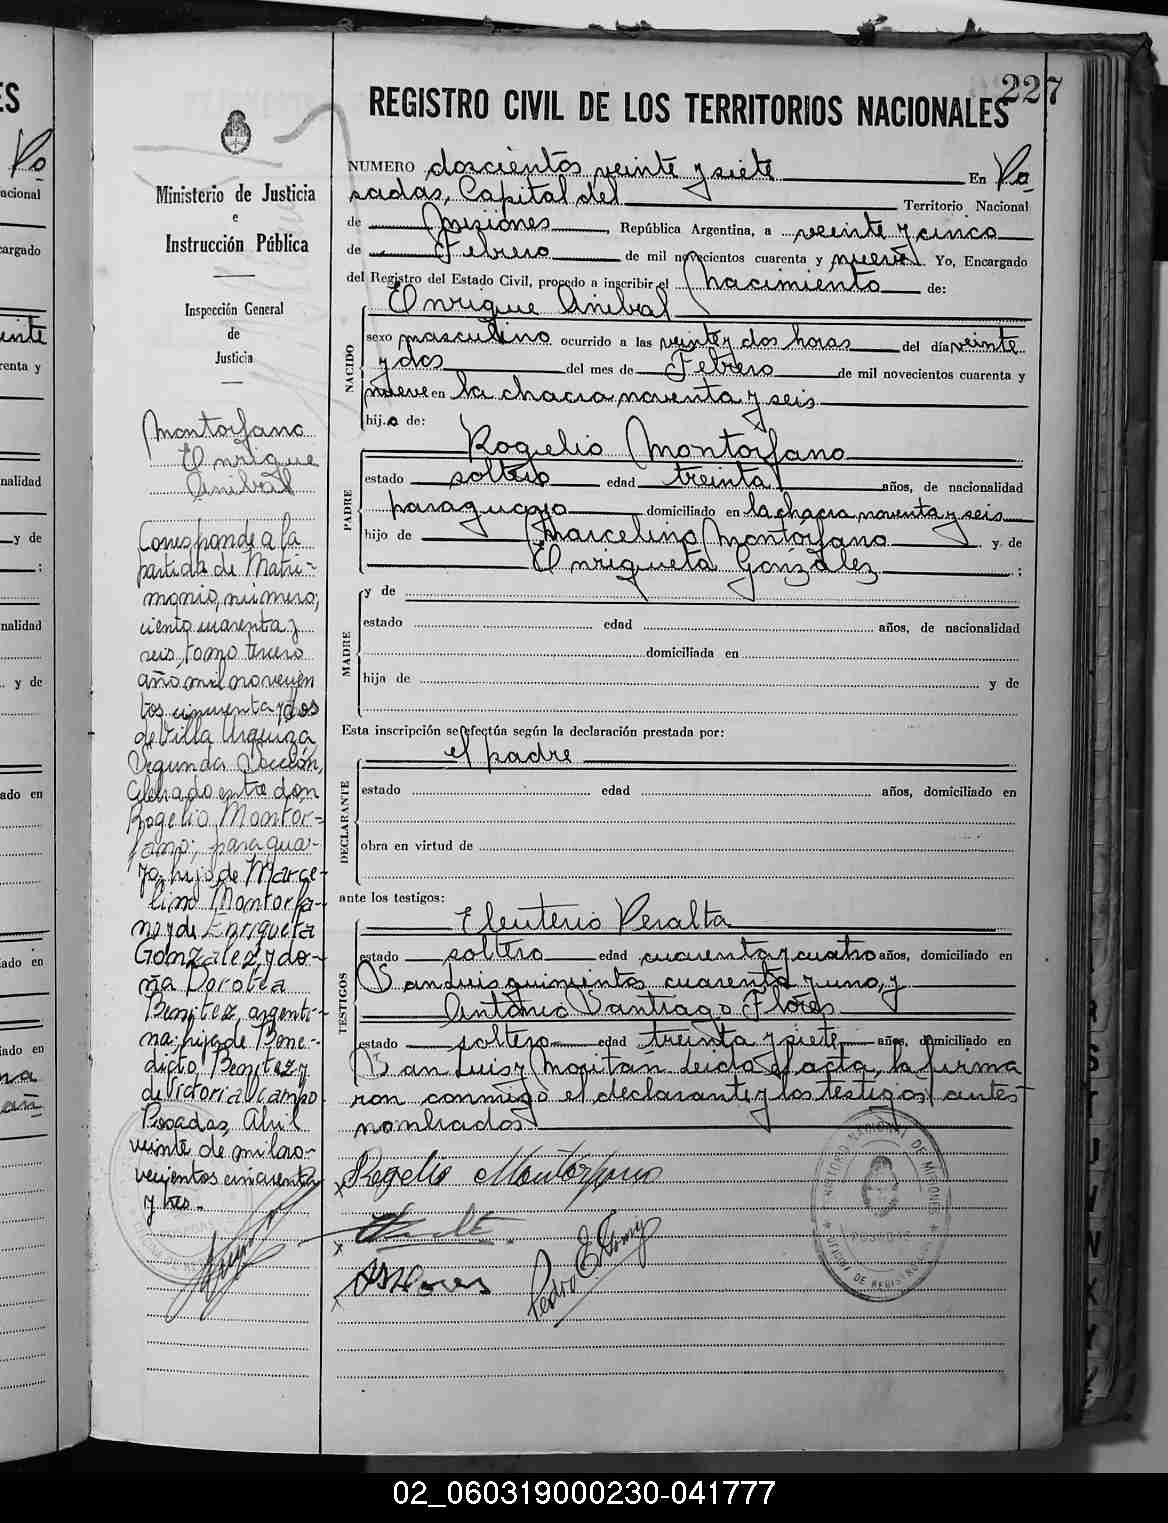 227
REGISTRO CIVIL DE LOS TERRITORIOS NACIONALES
Ministerio de Justicia
e
Instrucción Pública
Inspección General
de
Justicia
Montorfano
Enrique
Anibal
Corresponde a la
partida de Matri-
monio, numero,
ciento cuarenta y
seis, tomo tercero
año mil novecien
tos cincuenta y dos
de Villa Urquiza
Segunda Sección,
Celebrado entre don
Rogelio Montor-
fano; paragua-
yo, hijo de Marce-
lino Montorfa-
no y de Enriqueta
Gonzalez, y do-
ña Dorotea
Benitez, argenti-
na, hija de Bene-
dicto Benitez y
de Victoria Ocampo
Posadas, Abril
veinte de mil no-
vecientos cincuenta
y tres.-
NUMERO doscientos veinte y siete En Po
sadas, Capital del Territorio Nacional
de Misiones, República Argentina, a veinte y cinco
de Febrero de mil novecientos cuarenta y nueve. Yo, Encargado
del Registro del Estado Civil, procedo a inscribir el Nacimiento de:
NACIDO
Enrique Anibal
sexo masculino ocurrido a las veinte y dos horas del día veinte
y dos del mes de Febrero de mil novecientos cuarenta y
nueve en la chacra noventa y seis
hijo de:
PADRE
Rogelio Montorfano
estado soltero edad treinta años, de nacionalidad
paraguayo domiciliado en la chacra noventa y seis
hijo de Marcelino Montorfano y de
Enriqueta González :
MADRE
y de
estado edad años, de nacionalidad
domiciliada en
hija de y de
Esta inscripción se efectúa según la declaración prestada por:
DECLARANTE
el padre
estado edad años, domiciliado en
obra en virtud de
ante los testigos:
TESTIGOS
Eleuterio Peralta
estado soltero edad cuarenta y cuatro años, domiciliado en
San Luis quinientos cuarenta y uno, y
Antonio Santiago Flores
estado soltero edad treinta y siete años, domiciliado en
San Luis y Mopitán Leído el acta, la firma
ron conmigo el declarante y los testigos antes
nombrados
Rogelio Montorfano
ASFlores
Pedro E
02_060319000230-041777